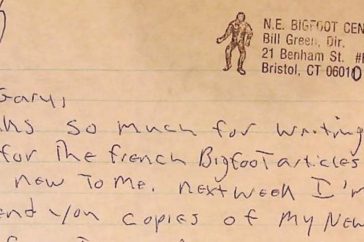 N.E. BIGFOOT CEN
Bill Green, Dir.
21 Benham St. #
Bristol, CT 06010
Gary,
so much for writing
for The french Bigfoot articles
new To me. next week I'm
end you copies of my New